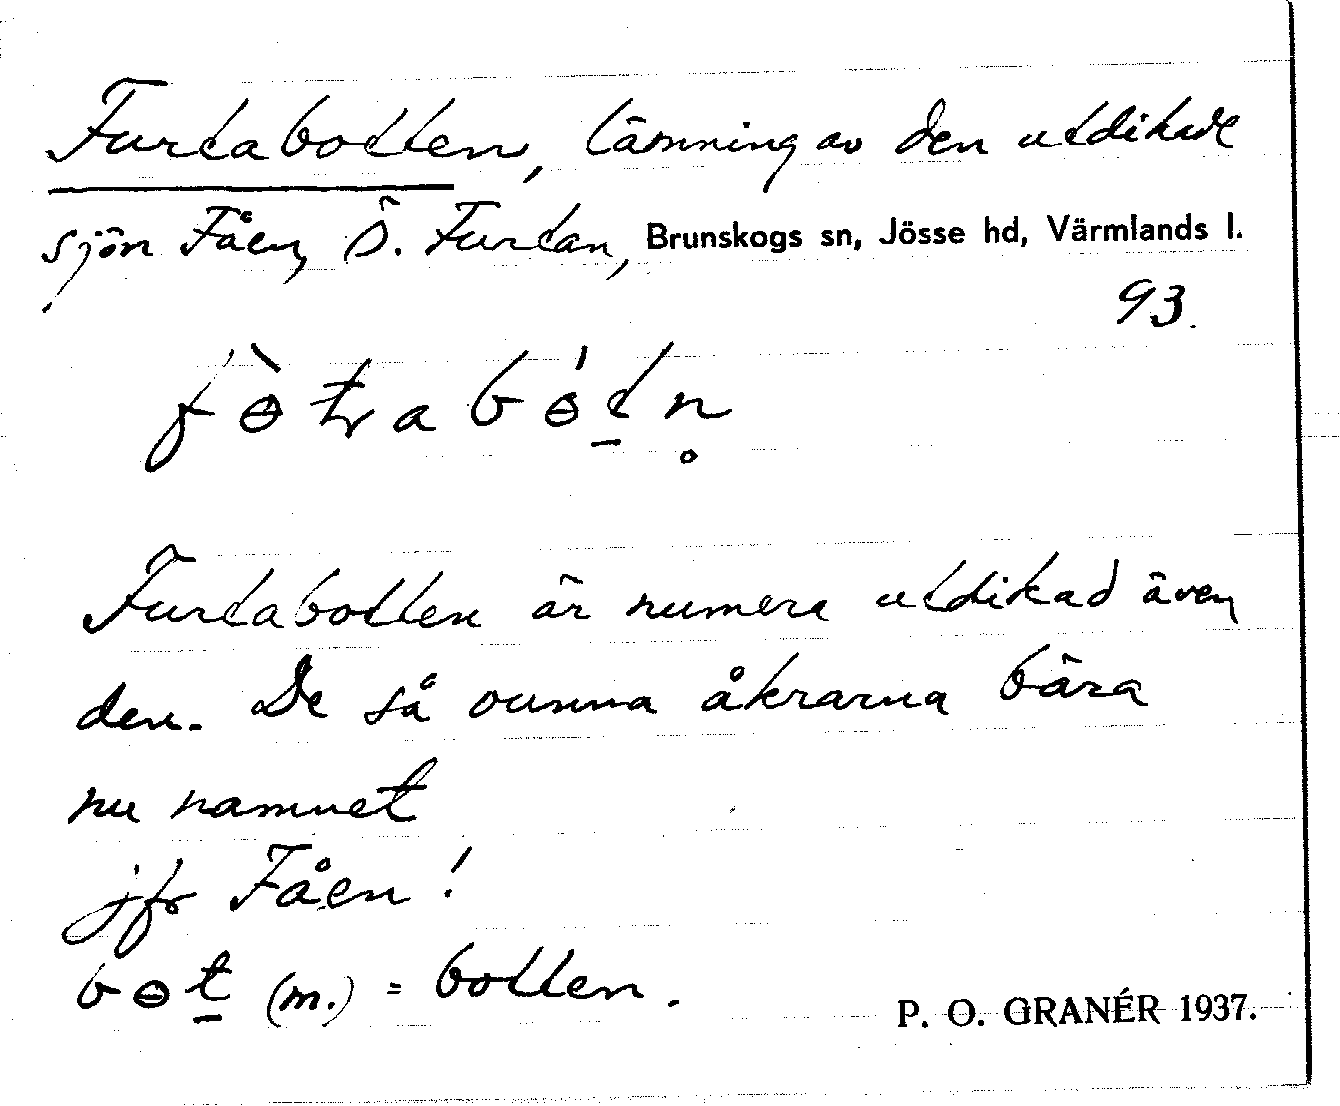 Furtabotten, lämning av den utdikade
sjön Fåen, Ö. Furtan, Brunskogs sn, Jösse hd, Värmlands l.
93.
Furtabotten är numera utdikad även
den. De så vunna åkrarna bära
nu namnet
jfr Fåen!
bɵt (m.) = botten.
P. O. GRANÉR 1937.